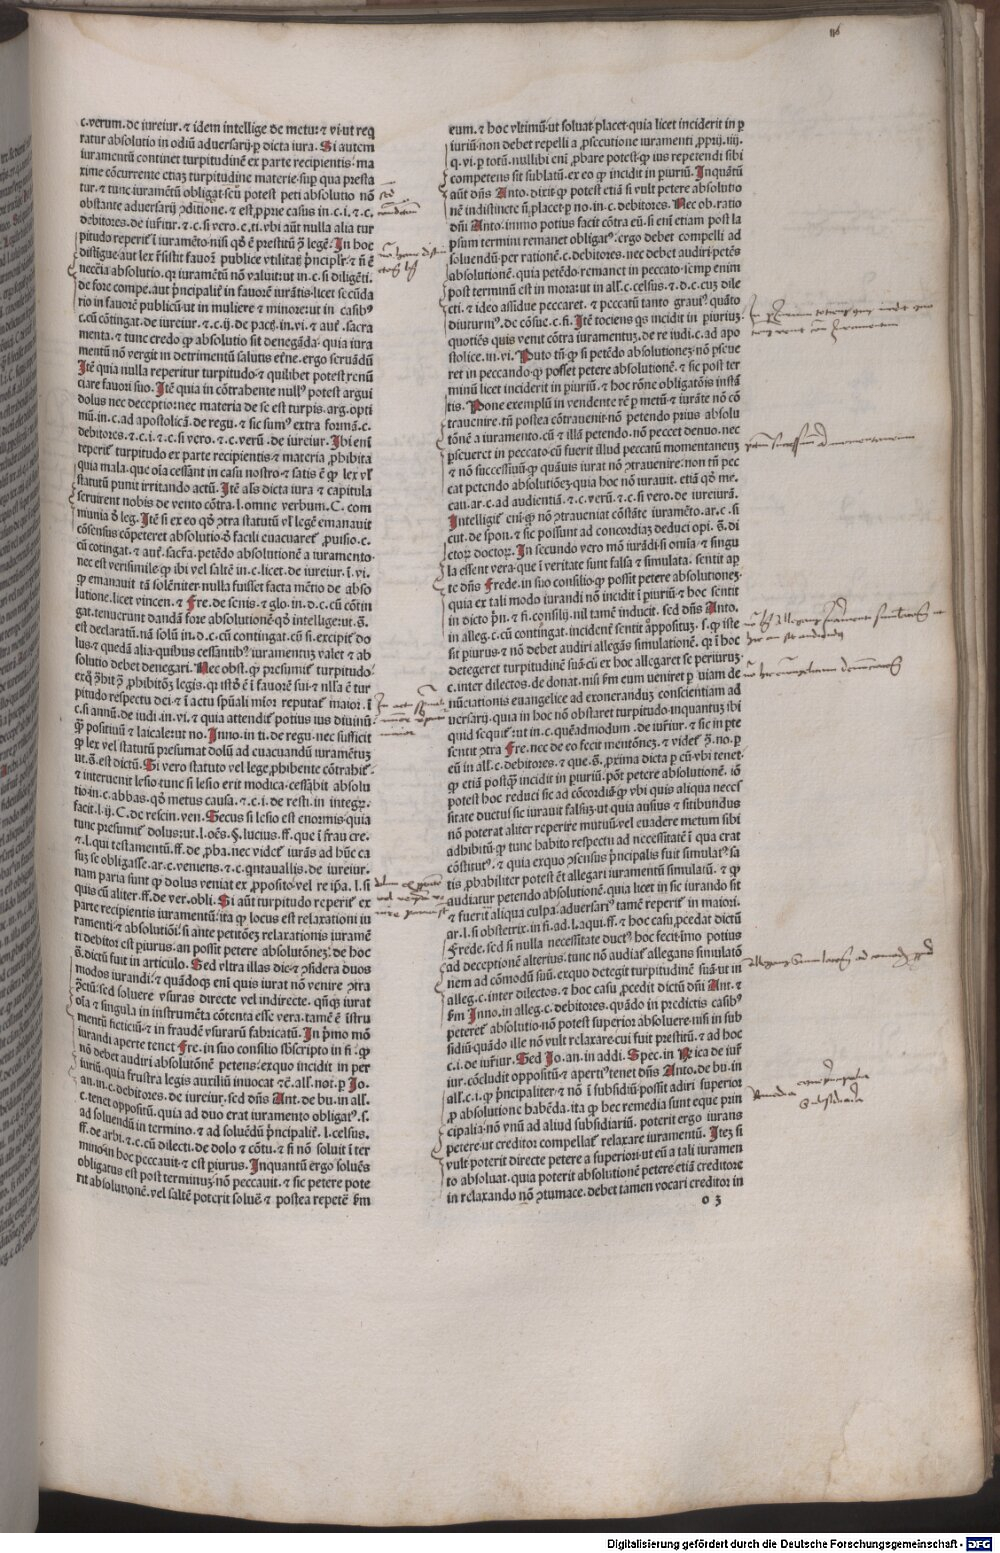 116
c.verum.de iureiur.⁊ idem intellige de metu:⁊ vi ut req
ratur absolutio in odiū aduersarij.p dicta iura. Si autem
iuramentū continet turpitudinē ex parte recipientis.ma
xime cōcurrente etiaȝ turpitudine materie.sup qua presta
tur.⁊ tunc iuramētū obligat.scꝫ potest peti absolutio nō
obstante aduersarij ꝯditione.⁊ est ꝓprie casus in.c.i.⁊.c.
debitores.de iur̄iur.⁊.c.si vero.c.ti.vbi aūt nulla alia tur
pitudo reperit̄ ī iuramēto nisi qd̓ ē prestitū ꝯ̄ legē. In hoc
distīgue.aut lex r̄sistit fauore publice vtilitat̄ pncipalr̄.⁊ nō ē
neccīa absolutio.qꝛ iuramētū nō valuit:ut in.c.si diligēti.
de fore compe.aut pncipalit̄ in fauorē iurātis.licet secūda
rio in fauorē publicū.ut in muliere ⁊ minore:ut in casib⁹
c.cū cōtingat.de iureiur.⁊.c.ij.de pact̄.in.vi.⁊ aut̄.sacra
menta.⁊ tunc credo ꝙ absolutio sit denegāda.quia iura
mentū nōn vergit in detrimentū salutis et̄ne.ergo seruādū
Itē quia nulla reperitur turpitudo:⁊ quilibet potest renū
ciare fauori suo. Itē quia in cōtrahente null⁹ potest argui
dolus nec deceptio:nec materia de se est turpis.arg.opti
mū.in.c.ad apostolicā.de regu.⁊ sic sum⁹ extra formā.c.
debitores.⁊.c.i.⁊.c.si vero.⁊.c.verū.de iureiur. Ibi enī
reperit̄ turpitudo ex parte recipientis ⁊ materia ꝓhibita
quia mala.que oīa cessant in casu nostro ⁊ satis ē ꝙ lex vl̄
statutū punit irritando actū. Itē als dicta iura ⁊ capitula
seruirent nobis de vento cōtra.l.omne verbum.C.com
munia d̓ leg. Itē si ex eo qd̓ ꝯtra statutū vl̄ legē emanauit
cōsensus cōpeteret absolutio.d̓ facili euacuaret̄ ꝓuisio.c.
cū cōtingat.⁊ aut̄.sacrā.petēdo absolutionē a iuramento.
nec est verisimile.ꝙ ibi vel saltē in.c.licet.de iureiur.ī.vi.
ꝙ emanauit tā solēniter.nulla fuisset facta mētio de abso
lutione.licet vincen.⁊ Fre.de senis.⁊ glo.in.d.c.cū cōtin
gat.tenuerunt dandā fore absolutionē.qd̓ intelligerē.ut.s̄.
est declaratū.nā solū in.d.c.cū contingat.cū fi.excipit̄ do
lus.⁊ quedā alia.quibus cessantib⁹ iuramentū valet ⁊ ab
solutio debet denegari. Nec obst.ꝙ presumit̄ turpitudo.
exꝗ̄ ꝓhibit̄ ꝯ̄ ꝓhibitōȝ legis.qꝛ istd̓ ē ī fauorē sui.⁊ nulla ē tur
pitudo respectu dei.⁊ ī actu spūali mīor reputat̄ maior.ī
c.si annū.de iudi.in.vi.⁊ quia attendit̄ potius ius diuinū
ꝙ̄ positiuū ⁊ laicale:ut no. Inno.in ti.de regu.nec sufficit
ꝙ lex vel statutū presumat dolū ad euacuandū iuramētū
ut.s̄.est dictū. Si vero statuto vel lege ꝓhibente cōtrahit̄
⁊ interuenit lesio.tunc si lesio erit modica.cessabit absolu
tio.in.c.abbas.qd̓ metus causa.⁊.c.i.de resti.in integꝝ.
facit.l.ij.C.de rescin.ven. Secus si lesio est enormis.quia
tunc presumit̄ dolus:ut.l.oēs.§.lucius.ff.que ī frau cre.
⁊.l.qui testamentū.ff.de.ꝓba.nec videt̄ iurās ad hūc ca
suȝ se obligasse.ar.c.veniens.⁊.c.qntauallis.de iureiur.
nam paria sunt ꝙ dolus veniat ex ꝓposito.vel re ip̄a.l.si
quis cū aliter.ff.de ver.obli. Si aūt turpitudo reperit̄ ex
parte recipientis iuramentū:ita ꝙ locus est relaxationi iu
ramenti.⁊ absolutiōi.si ante petitōeȝ relaxationis iuramē
ti debitor est piurus.an possit petere absolutōneȝ.de hoc
s̄.dictū fuit in articulo. Sed vltra illas dic.⁊ ꝯsidera duos
modos iurandi.⁊ quādoqȝ enī quis iurat nō venire ꝯtra
ꝑctū.sed soluere vsuras directe vel indirecte.qn̄qȝ iurat
oīa ⁊ singula in instrumēto cōtenta esse vera.tamē ē īstru
mentū ficticiū.⁊ in fraudē vsurarū fabricatū. In pmo mō
iurandi aperte tenet Fre.in suo consilio sb̄scripto in fi.ꝙ
nō debet audiri absolutōnē petens.exquo incidit in per
iuriū.quia frustra legis auxiliū inuocat ⁊c̄.all.no.p Io.
an.in.c.debitores.de iureiur.sed dn̄s Ant.de bu.in all.
c.tenet oppositū.quia ad duo erat iuramento obligat⁹.s.
ad soluendū in termino.⁊ ad soluēdū pncipalit̄.l.celsus.
ff.de arbi.⁊.c.cū dilecti.de dolo ⁊ cōtu.⁊ si nō soluit ī ter
mino:in hoc peccauit ⁊ est piurus. Inquantū ergo soluēs
obligatus est post terminuȝ.nō peccauit.⁊ sic petere pote
rit absolutionē.vel saltē poterit soluē ⁊ postea repetē fm
eum.⁊ hoc vltimū.ut soluat placet.quia licet inciderit in p
iuriū.non debet repelli a ꝓsecutione iuramenti ꝓprij.iij.
q.vi.p totū.nullibi enī ꝓbare potest.ꝙ ius repetendi sibi
competens sit sublatū.ex eo ꝙ incidit in piuriū. Inquātū
aūt dn̄s Anto.dixit ꝙ potest etiā si vult petere absolutio
nē indistincte nō placet.p no.in.c.debitores. Nec ob.ratio
dn̄i Anto.immo potius facit cōtra eū.si enī etiam post la
psum termini remanet obligat⁹.ergo debet compelli ad
soluendū.per rationē.c.debitores.nec debet audiri petēs
absolutionē.quia petēdo remanet in peccato.semp enim
post terminū est in mora:ut in all̄.c.celsus.⁊.d.c.cuȝ dile
cti.⁊ ideo assidue peccaret.⁊ peccatū tanto graui⁹ quāto
diuturni⁹.de cōsue.c.fi. Itē tociens qs incidit in piuriuȝ.
quotiēs quis venit cōtra iuramentuȝ.de re iudi.c.ad apo
stolice.in.vi. Puto tn̄ ꝙ si petēdo absolutioneȝ.nō pseue
ret in peccando.ꝙ posset petere absolutionē.⁊ sic post ter
minū licet inciderit in piuriū.⁊ hoc rōne obligatōis instā
tis. Pone exemplū in vendente rē p metū ⁊ iurāte nō cō
trauenire.tn̄ postea cōtrauenit.nō petendo prius absolu
tōnē a iuramento.cū ⁊ illā petendo.nō peccet denuo.nec
pseueret in peccato.cū fuerit illud peccatū momentaneuȝ
⁊ nō successiuū.ꝙ quāuis iurat nō ꝯtrauenire.non tn̄ pec
cat petendo absolutōeȝ.quia hoc nō iurauit.etiā qd̓ me.
cau.ar.c.ad audientiā.⁊.c.verū.⁊.c.si vero.de iureiurā.
Intelligit̄ enī.ꝙ nō ꝯtraueniat cōstāte iuramēto.ar.c.si
cut.de spon.⁊ sic possunt ad concordiaȝ deduci opi.s̄.di
ctoꝝ doctoꝝ. In secundo vero mō iurādi.si omīa ⁊ singu
la essent vera.que ī veritate sunt falsa ⁊ simulata.sentit ap
te dn̄s Frede.in suo consilio.ꝙ possit petere absolutioneȝ.
quia ex tali modo iurandi nō incidit ī piuriū.⁊ hoc sentit
in dicto pn̄.⁊ fi.consilij.nil tamē inducit.sed dn̄s Anto.
in alleg.c.cū contingat.incident̄ sentit oppositū.s.ꝙ iste
sit piurus.⁊ nō debet audiri allegās simulationē.qꝛ ī hoc
detegeret turpitudinē suā.cū ex hoc allegaret se periuruȝ.
c.inter dilectos.de donat.nisi fm eum veniret p viam de
nūciationis euangelice.ad exonerandū conscientiam ad
uersarij.quia in hoc nō obstaret turpitudo.inquantū sibi
quid sequit̄:ut in.c.quēadmodum.de iur̄iur.⁊ sic in pte
sentit ꝯtra Fre.nec de eo fecit mentōneȝ.⁊ videt̄ ꝯ̄.no.p
eū in all̄.c.debitores.⁊ que.s̄.prima dicta p cū.vbi tenet.
ꝙ etiā postꝗ̄ incidit in piuriū.pōt petere absolutionē.iō
potest hoc reduci sic ad cōcordiā:ꝙ vbi quis aliqua necel
sitate ductus sic iurauit falsuȝ:ut quia ausius ⁊ sitibundus
nō poterat aliter reperire mutuū.vel euadere metum sibi
adhibitū.ꝙ tunc habito respectu ad necessitatē ī qua erat
cōstitut⁹.⁊ quia exquo ꝯsensus pncipalis fuit simulat⁹ sa
tis ꝓbabiliter potest ēt allegari iuramentū simulatū.⁊ ꝙ
audiatur petendo absolutionē.quia licet in sic iurando sit
⁊ fuerit aliqua culpa.aduersari⁹ tamē reperit̄ in maiori.
ar.l.si obstetrix.in fi.ad.l.aqui.ff.⁊ hoc casu ꝓcedat dictū
Frede.sed si nulla necessitate duct⁹ hoc fecit:imo potius
ad deceptionē alterius.tunc nō audiat̄ allegans simulatō
nem ad cōmodū suū.exquo detegit turpitudinē suā:ut in
alleg.c.inter dilectos.⁊ hoc casu ꝓcedit dictū dn̄i Ant.⁊
fm Inno.in alleg.c.debitores.quādo in predictis casib⁹
peteret̄ absolutio.nō potest superior absoluere.nisi in sub
sidiū.quādo ille nō vult relaxare.cui fuit prestitū.⁊ ad hoc
c.i.de iur̄iur. Sed Io.an.in addi. Spec.in Rica de iur̄
iur.cōcludit oppositū.⁊ aperti⁹ tenet dn̄s Anto.de bu.in
all̄.c.i.ꝙ pncipaliter:⁊ nō ī subsidiū possit adiri superior
ꝓ absolutione habēda.ita ꝙ hec remedia sunt eque prin
cipalia.nō vnū ad aliud subsidiariū.poterit ergo iurans
petere.ut creditor compellat̄ relaxare iuramentū. Iteȝ si
vult.poterit directe petere a superiori.ut eū a tali iuramen
to absoluat.quia poterit absolutionē petere etiā creditore
in relaxando nō ꝯtumace.debet tamen vocari creditor in
o 3
Digitalisierung gefördert durch die Deutsche Forschungsgemeinschaft - DFG